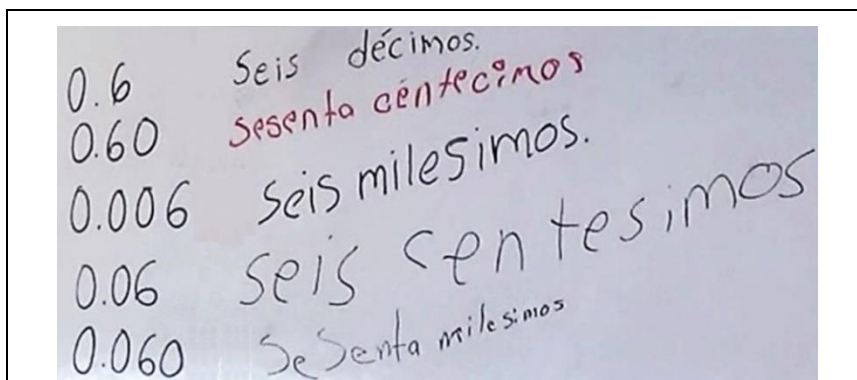 0.6 Seis décimos.
0.60 Sesenta céntecimos
0.006 Seis milesimos.
0.06 Seis centesimos
0.060 Sesenta milesimos